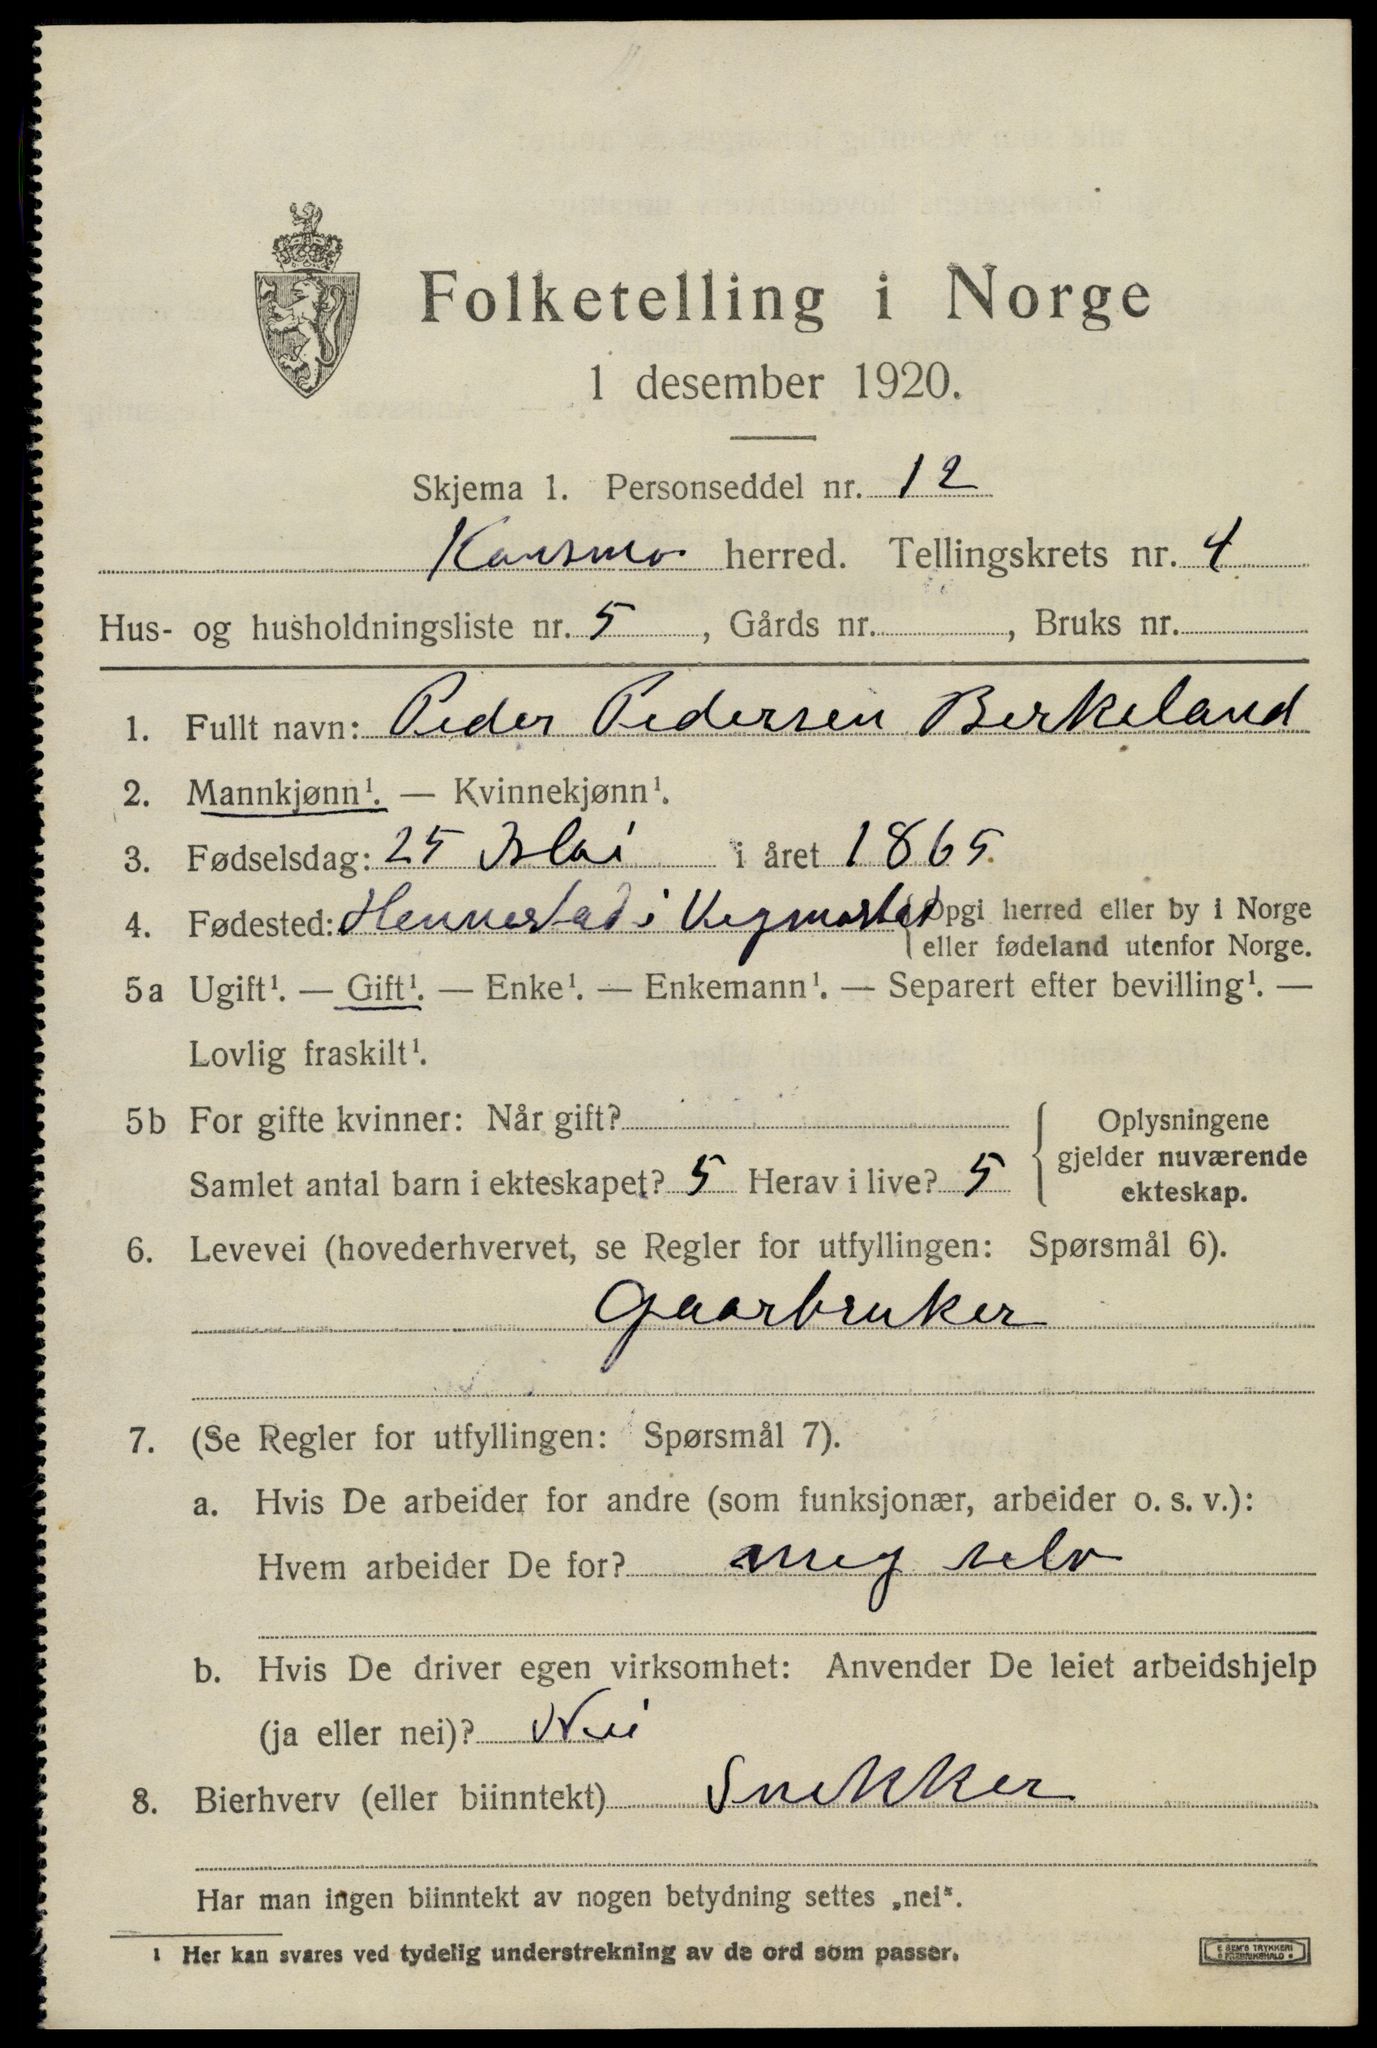 Folketelling i Norge
1 desember 1920.
Skjema 1. Personseddel nr. 12
Konsmo herred. Tellingskrets nr. 4
Hus- og husholdningsliste nr. 5, Gårds nr. , Bruks nr.
1. Fullt navn: Peder Pedersen Birkeland
2. Mannkjønn¹. — Kvinnekjønn¹.
3. Fødselsdag: 25 Mai i året 1865.
4. Fødested: Hennestad i Vegmostad (Opgi herred eller by i Norge
eller fødeland utenfor Norge.
5a Ugift¹. — Gift¹. — Enke¹. — Enkemann¹. — Separert efter bevilling¹. —
Lovlig fraskilt¹.
5b For gifte kvinner: Når gift?
Samlet antal barn i ekteskapet? 5 Herav i live? 5
Oplysningene
gjelder nuværende
ekteskap.
6. Levevei (hovederhvervet, se Regler for utfyllingen: Spørsmål 6).
Gaarbruker
7. (Se Regler for utfyllingen: Spørsmål 7).
a. Hvis De arbeider for andre (som funksjonær, arbeider o. s. v.):
Hvem arbeider De for? meg selv
b. Hvis De driver egen virksomhet: Anvender De leiet arbeidshjelp
(ja eller nei)? Nei
8. Bierhverv (eller biinntekt) Snekker
Har man ingen biinntekt av nogen betydning settes „nei“.
¹ Her kan svares ved tydelig understrekning av de ord som passer.
E SEM'S TRYKKERI
FREDRIKSHALD